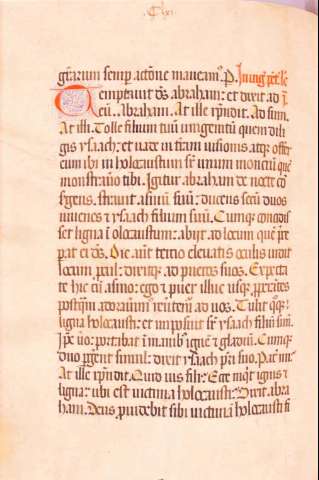 Clxi
gr̃arum semper actõne maneam⁹. P.
emptauit dñs abraham: et dixit ad
eũ. Abraham. At ille rñdit. Ad sum.
At illi. Tolle filium tuũ unigenitũ quem dili
gis ysaach: et uade in terram uisionis atq; offer
eum ibi in holocaustum sr̃ unum montiũ quẽ
monstrauero tibi. Igitur abraham de nocte con
surgens. strauit asinũ suũ: ducens secũ duos
iuuenes et ysaach filium suũ. Cumq; concidis
set ligna ĩ olocaustum: abiit ad locum quẽ p̃ce
pat ei dñs. Die aũt tertio eleuatis oculis uidit
locum p̃cul: dixitq; ad pueros suos. Expecta
te hic cũ asino: ego ⁊ puer illuc usq; p̃perãtes
postq̃m adorauim⁹ reuertem̃ ad uos. Tulit q̃q;
ligna holocausti: et imposuit sr̃ ysaach filiũ suũ.
Ip̃e ũo: portabat ĩ manib⁹ ignẽ ⁊ gladiũ. Cumq;
duo p̃gerent simul: dixit ysaach p̃ri suo. Pat̃ mi.
At ille rñdit. Quid uis fili: Ecce inq̃t ignis ⁊
ligna: ubi est uictima holocausti: Dixit abra
ham. Deus prouidebit sibi uictimã holocausti fi